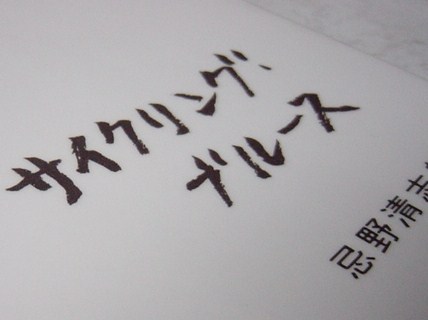 サイクリング・
ブルース
忌野清志